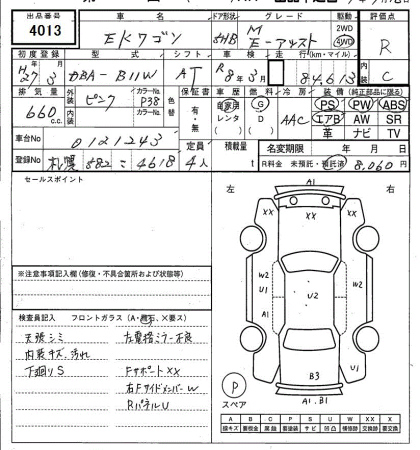 出品番号 4013
車名 EKワゴン
ドア形状 5HB
グレード M E-アシスト
駆動 2WD 4WD
評価点 R
内 C
初度登録 H27年3月
型式 DBA-B11W
シフト AT
車検 R8年3月
走行(km・マイル) 84,613
排気量 660 c.c.
外装 ピンク カラーNo. P38
内装 カラーNo.
色替
保証書 有・無
車歴 自家用 レンタ
燃料 G D
冷房 AAC
装備(純正部品に限る)
PS PW ABS
エアB AW SR
革 ナビ TV
車台No 0121243
登録No 札幌 582 こ 4618
定員 4人
積載量 t
名変期限 年 月 日
R料金 未預託・預託済 8,060円
セールスポイント
左 右
※注意事項記入欄(修復・不具合箇所および状態等)
検査員記入 フロントガラス(A・飛石、×要ス)
天張シミ 左電格ミラー不良
内装キズ、汚れ
下廻りS Fサポート××
右FサイドメンバーW
RパネルU
A1
XX XX XX
W2 W2
U1 U2
A1
U1
B3
A1.B1
P
スペア
A B C P S U W X XX
線キズ 要板金 腐食 要塗装 サビ 凹凸 補修跡 要交換 交換跡